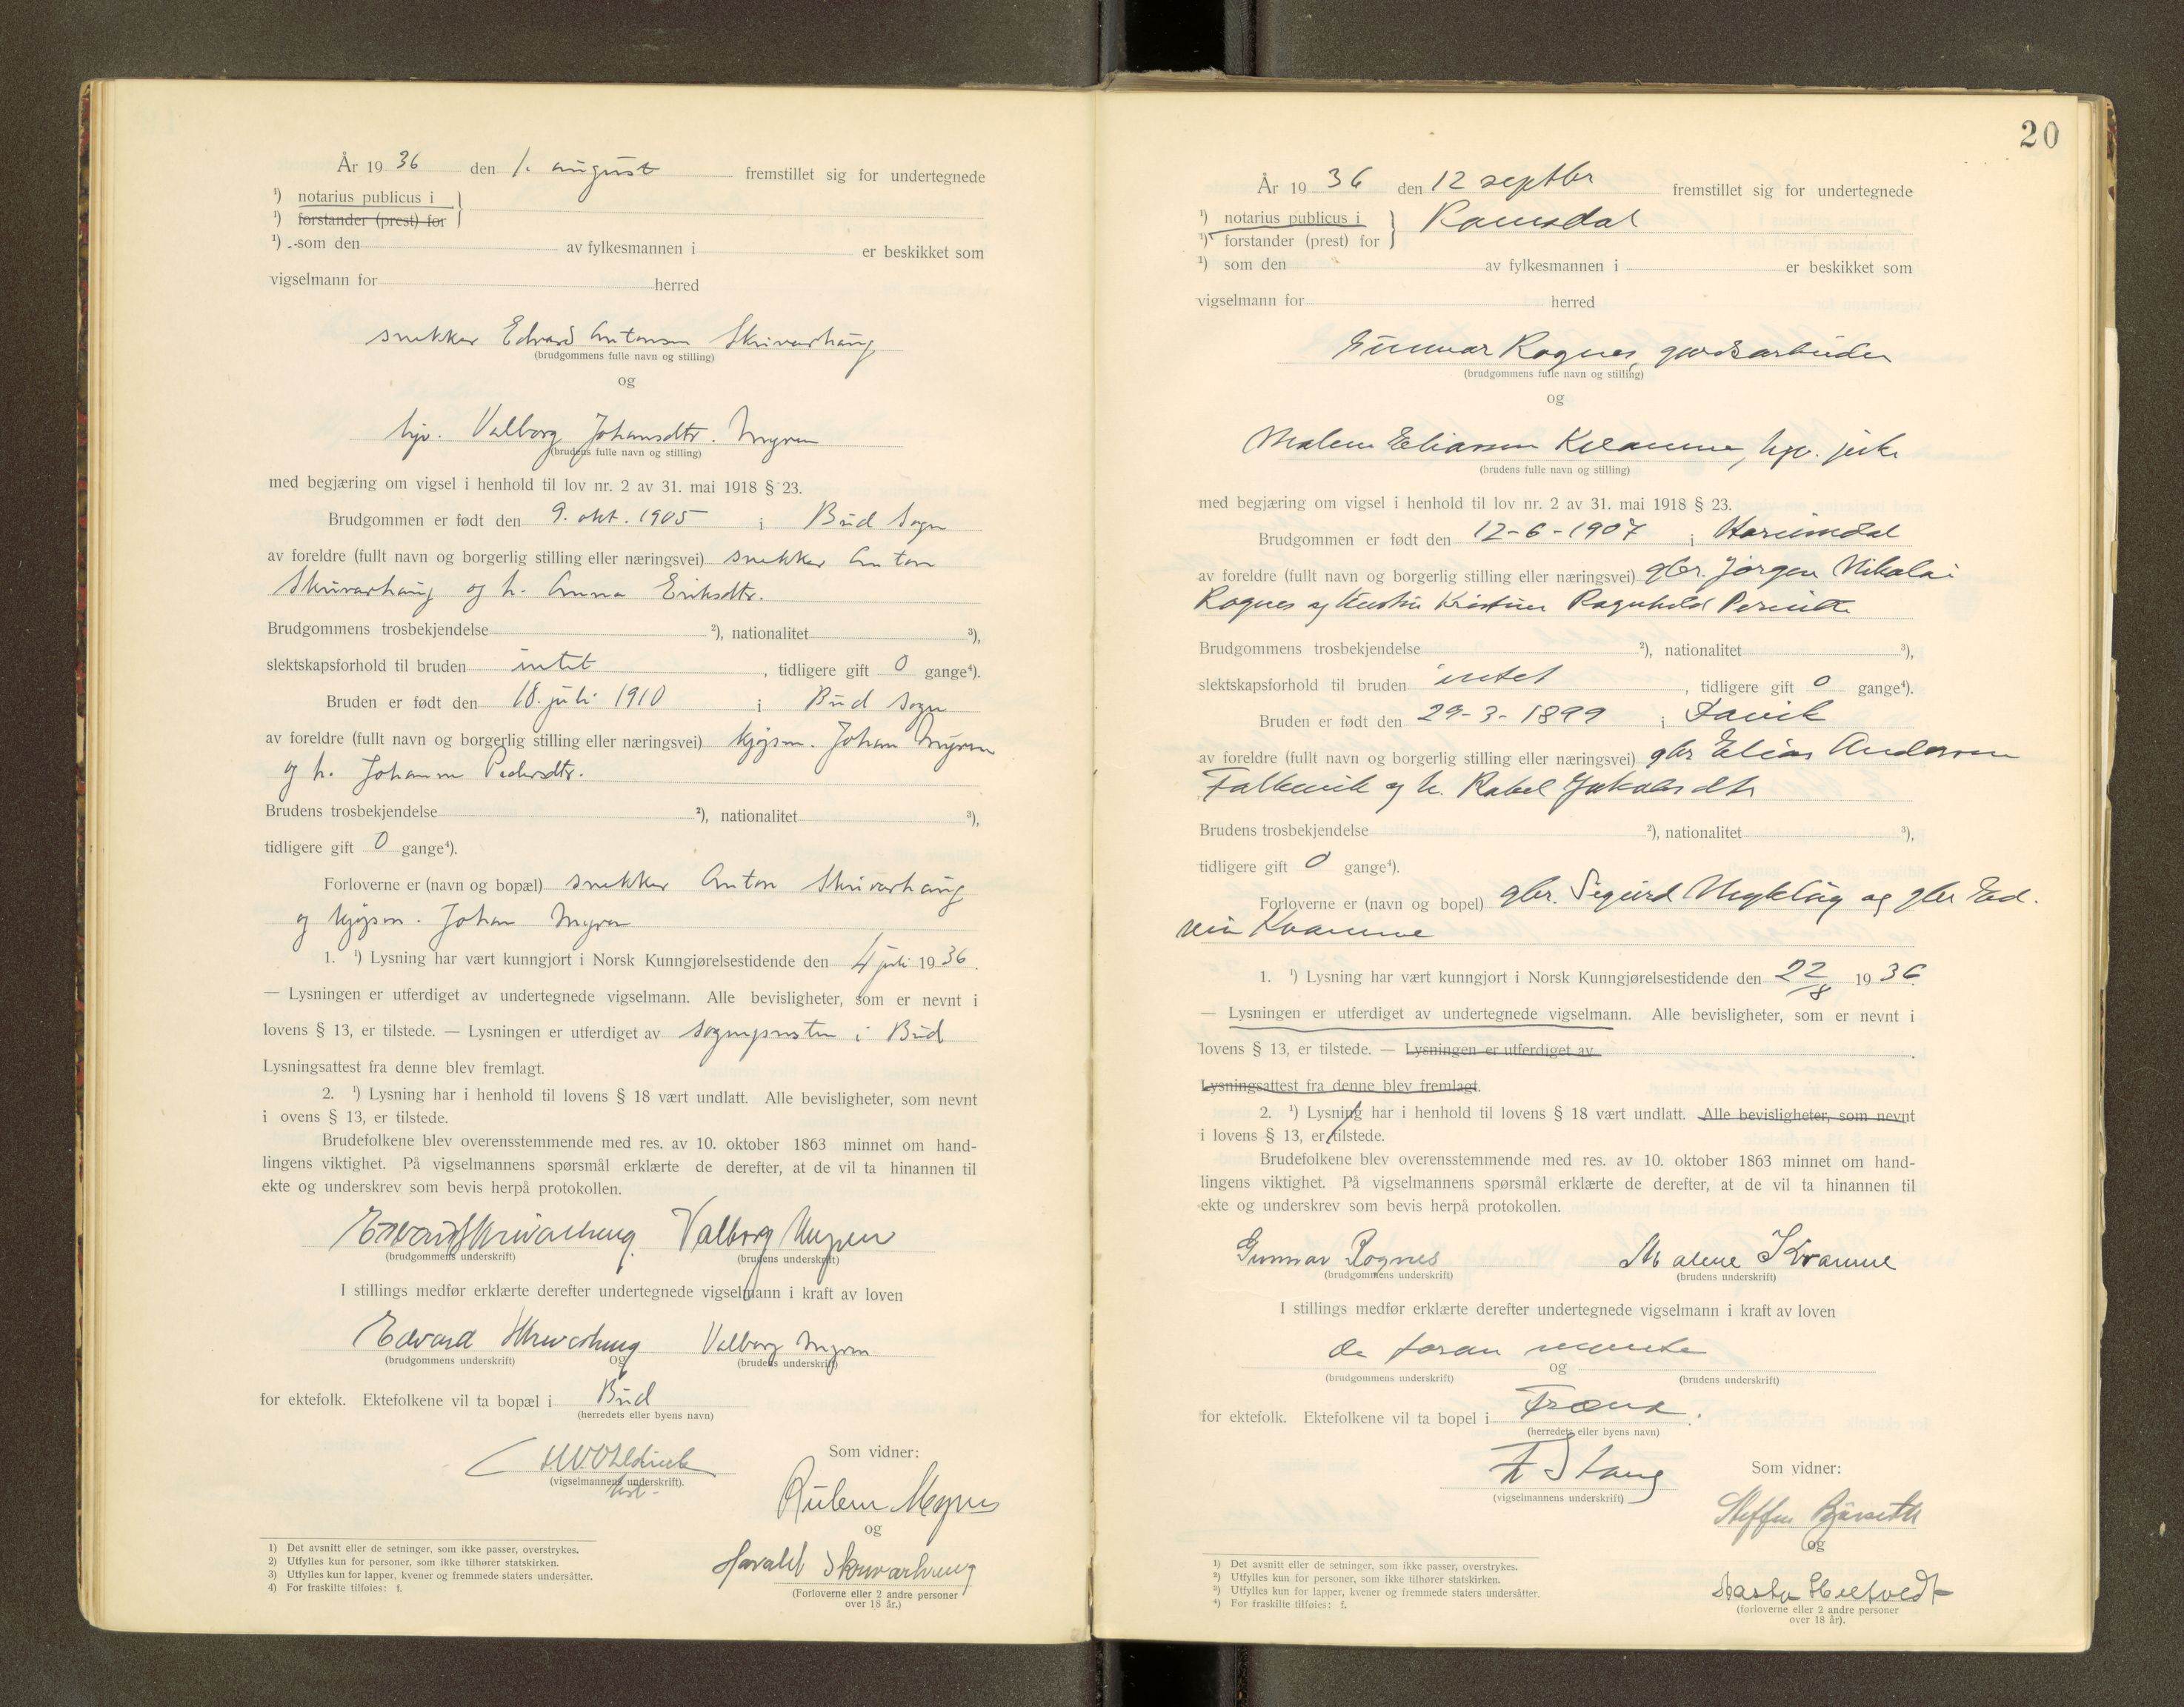 År 19 36 den 1. august fremstillet sig for undertegnede
¹) notarius publicus i
¹) forstander (prest) for
¹) som den av fylkesmannen i er beskikket som
vigselmann for herred
snekker Edvard Antonsen Skrivarhaug
(brudgommens fulle navn og stilling)
og
hjv. Valborg Johansdtr. Myren
(brudens fulle navn og stilling)
med begjæring om vigsel i henhold til lov nr. 2 av 31. mai 1918 § 23.
Brudgommen er født den 9. okt. 1905 i Bud sogn
av foreldre (fullt navn og borgerlig stilling eller næringsvei) snekker Anton
Skrivarhaug og h. Anna Eriksdtr.
Brudgommens trosbekjendelse ²), nationalitet ³),
slektskapsforhold til bruden intet , tidligere gift 0 gange⁴).
Bruden er født den 18. juli 1910 i Bud sogn
av foreldre (fullt navn og borgerlig stilling eller næringsvei) kjøpm. Johan Myren
og h. Johanne Pedersdtr.
Brudens trosbekjendelse ²), nationalitet ³),
tidligere gift 0 gange⁴).
Forloverne er (navn og bopæl) snekker Anton Skrivarhaug
og kjøpm. Johan Myren
1. ¹) Lysning har vært kunngjort i Norsk Kunngjørelsestidende den 4 juli 19 36.
— Lysningen er utferdiget av undertegnede vigselmann. Alle bevisligheter, som er nevnt i
lovens § 13, er tilstede. — Lysningen er utferdiget av sogneprsten i Bud
Lysningsattest fra denne blev fremlagt.
2. ¹) Lysning har i henhold til lovens § 18 vært undlatt. Alle bevisligheter, som nevnt
i ovens § 13, er tilstede.
Brudefolkene blev overensstemmende med res. av 10. oktober 1863 minnet om hand-
lingens viktighet. På vigselmannens spørsmål erklærte de derefter, at de vil ta hinannen til
ekte og underskrev som bevis herpå protokollen.
Edvard Skrivarhaug Valborg Myren
(brudgommens underskrift) (brudens underskrift)
I stillings medfør erklærte derefter undertegnede vigselmann i kraft av loven
Edvard Skrivarhaug Valborg Myren
(brudgommens underskrift) og (brudens underskrift)
for ektefolk. Ektefolkene vil ta bopæl i Bud
(herredets eller byens navn)
Som vidner:
(vigselmannens underskrift).
og
Harald Skrivarhaug
(Forloverne eller 2 andre personer
over 18 år.)
1) Det avsnitt eller de setninger, som ikke passer, overstrykes.
2) Utfylles kun for personer, som ikke tilhører statskirken.
3) Utfylles kun for lapper, kvener og fremmede staters undersåtter.
4) For fraskilte tilføies: f.
20
År 19 36 den 12 septbr fremstillet sig for undertegnede
¹) notarius publicus i Romsdal
¹) forstander (prest) for
¹) som den av fylkesmannen i er beskikket som
vigselmann for herred
Gunnar Rognes, gardsarbeider
(brudgommens fulle navn og stilling)
og
Malene Eliassen Kvamme, hjv. pike
(brudens fulle navn og stilling)
med begjæring om vigsel i henhold til lov nr. 2 av 31. mai 1918 § 23.
Brudgommen er født den 12-6-1907 i
av foreldre (fullt navn og borgerlig stilling eller næringsvei) gbr. Jørgen Nikolai
Rognes og hustru Kristine Ragnhild
Brudgommens trosbekjendelse ²), nationalitet ³),
slektskapsforhold til bruden intet , tidligere gift 0 gange⁴).
Bruden er født den 29-3-1899 i
av foreldre (fullt navn og borgerlig stilling eller næringsvei) gbr Elias Andersen
Falkevik og h. Rakel Jakobsdtr
Brudens trosbekjendelse ²), nationalitet ³),
tidligere gift 0 gange⁴).
Forloverne er (navn og bopel) gbr. Sigurd og gbr Ed.
vin Kvamme
1. ¹) Lysning har vært kunngjort i Norsk Kunngjørelsestidende den 22/8 19 36.
— Lysningen er utferdiget av undertegnede vigselmann. Alle bevisligheter, som er nevnt i
lovens § 13, er tilstede. — Lysningen er utferdiget av .
Lysningsattest fra denne blev fremlagt.
2. ¹) Lysning har i henhold til lovens § 18 vært undlatt. Alle bevisligheter, som nevnt
i lovens § 13, er tilstede.
Brudefolkene blev overensstemmende med res. av 10. oktober 1863 minnet om hand-
lingens viktighet. På vigselmannens spørsmål erklærte de derefter, at de vil ta hinannen til
ekte og underskrev som bevis herpå protokollen.
Gunnar Rognes Malene Kvamme
(brudgommens underskrift) (brudens underskrift)
I stillings medfør erklærte derefter undertegnede vigselmann i kraft av loven
de foran nevnte
og
(brudgommens underskrift) (brudens underskrift)
for ektefolk. Ektefolkene vil ta bopel i Fræna.
(herredets eller byens navn)
Stang
(vigselmannens underskrift)
Som vidner:
Steffen Bjørseth
og
Aasta Heltvedt
(forloverne eller 2 andre personer
over 18 år).
¹) Det avsnitt eller de setninger, som ikke passer, overstrykes.
²) Utfylles kun for personer, som ikke tilhører statskirken.
³) Utfylles kun for lapper, kvener og fremmede staters undersåtter.
⁴) For fraskilte tilføies: f.